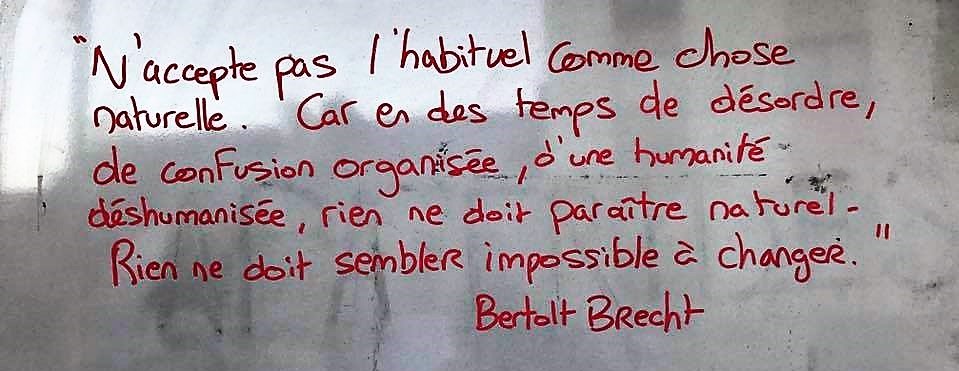 "N'accepte pas l'habituel comme chose
naturelle. Car en des temps de désordre,
de confusion organisée, d'une humanité
déshumanisée, rien ne doit paraître naturel-
Rien ne doit sembler impossible à changer."
Bertolt Brecht